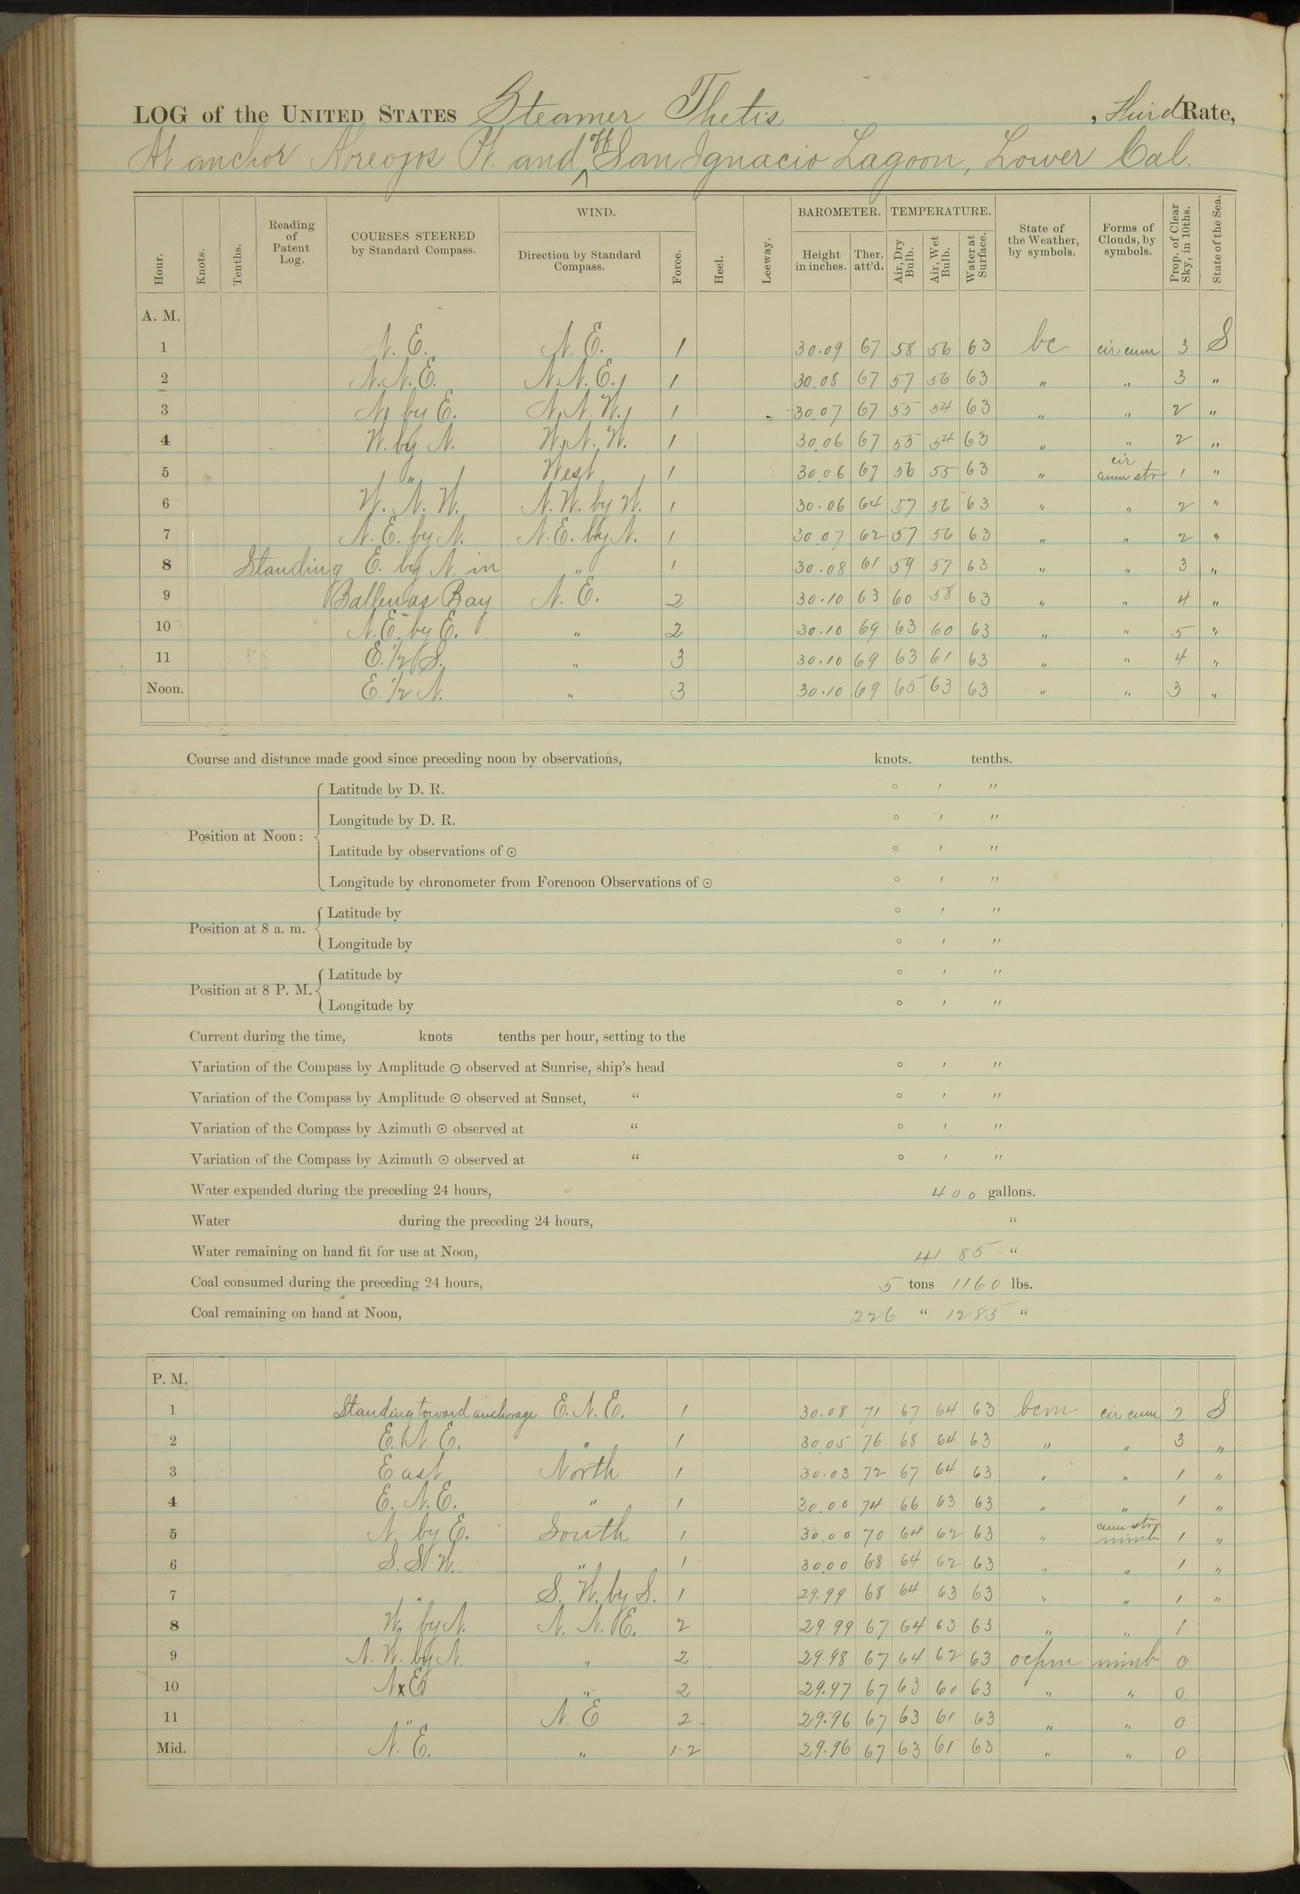 LOG of the UNITED STATES Steamer Thetis , Third Rate,
At anchor Abreojos Pt. and off San Ignacio Lagoon, Lower Cal.
Hour. Knots. Tenths. Reading of Patent Log. COURSES STEERED by Standard Compass. WIND. Direction by Standard Compass. Force. Heel. Leeway. BAROMETER. Height in inches. Ther. att'd. TEMPERATURE. Air, Dry Bulb. Air, Wet Bulb. Water at Surface. State of the Weather, by symbols. Forms of Clouds, by symbols. Prop. of Clear Sky, in 10ths. State of the Sea.
A. M.
1 N. E. N. E. 1 30.09 67 58 56 63 bc cir cum 3 S
2 N. N. E. N. N. E. 1 30.08 67 57 56 63 " " 3 "
3 N. by E. N. N. W. 1 30.07 67 55 54 63 " " 2 "
4 W. by N. W. N. W. 1 30.06 67 55 54 63 " " 2 "
5 " West 1 30.06 67 56 55 63 " cir cum str 1 "
6 W. N. W. N. W. by W. 1 30.06 64 57 56 63 " " 2 "
7 N. E. by N. N. E. by N. 1 30.07 62 57 56 63 " " 2 "
8 Standing E. by N. in " 1 30.08 61 59 57 63 " " 3 "
9 Ballenas Bay N. E. 2 30.10 63 60 58 63 " " 4 "
10 N. E. by E. " 2 30.10 69 63 60 63 " " 5 "
11 E. 1/2 S. " 3 30.10 69 63 61 63 " " 4 "
Noon. E. 1/2 N. " 3 30.10 69 65 63 63 " " 3 "
Course and distance made good since preceding noon by observations, knots. tenths.
Position at Noon: Latitude by D. R. ° ′ ″
Longitude by D. R. ° ′ ″
Latitude by observations of ⊙ ° ′ ″
Longitude by chronometer from Forenoon Observations of ⊙ ° ′ ″
Position at 8 a. m. Latitude by ° ′ ″
Longitude by ° ′ ″
Position at 8 P. M. Latitude by ° ′ ″
Longitude by ° ′ ″
Current during the time, knots tenths per hour, setting to the
Variation of the Compass by Amplitude ⊙ observed at Sunrise, ship's head ° ′ ″
Variation of the Compass by Amplitude ⊙ observed at Sunset, " ° ′ ″
Variation of the Compass by Azimuth ⊙ observed at " ° ′ ″
Variation of the Compass by Azimuth ⊙ observed at " ° ′ ″
Water expended during the preceding 24 hours, 400 gallons.
Water during the preceding 24 hours, "
Water remaining on hand fit for use at Noon, 4185 "
Coal consumed during the preceding 24 hours, 5 tons 1160 lbs.
Coal remaining on hand at Noon, 226 " 1285 "
P. M.
1 Standing toward anchorage E. N. E. 1 30.08 71 67 64 63 bcm cir cum 2 S
2 E. N. E. " 1 30.05 76 68 64 63 " " 3 "
3 East North 1 30.03 72 67 64 63 " " 1 "
4 E. N. E. " 1 30.00 74 66 63 63 " " 1 "
5 N. by E. South 1 30.00 70 64 62 63 " cum str nimb 1 "
6 S. S. W. " 1 30.00 68 64 62 63 " " 1 "
7 " S. W. by S. 1 29.99 68 64 63 63 " " 1 "
8 W. by N. N. N. E. 2 29.99 67 64 63 63 " " 1
9 N. W. by N. " 2 29.98 67 64 62 63 ocpm nimb 0
10 NxE " 2 29.97 67 63 60 63 " " 0
11 " N. E 2 29.96 67 63 61 63 " " 0
Mid. N. E. " 1-2 29.96 67 63 61 63 " " 0